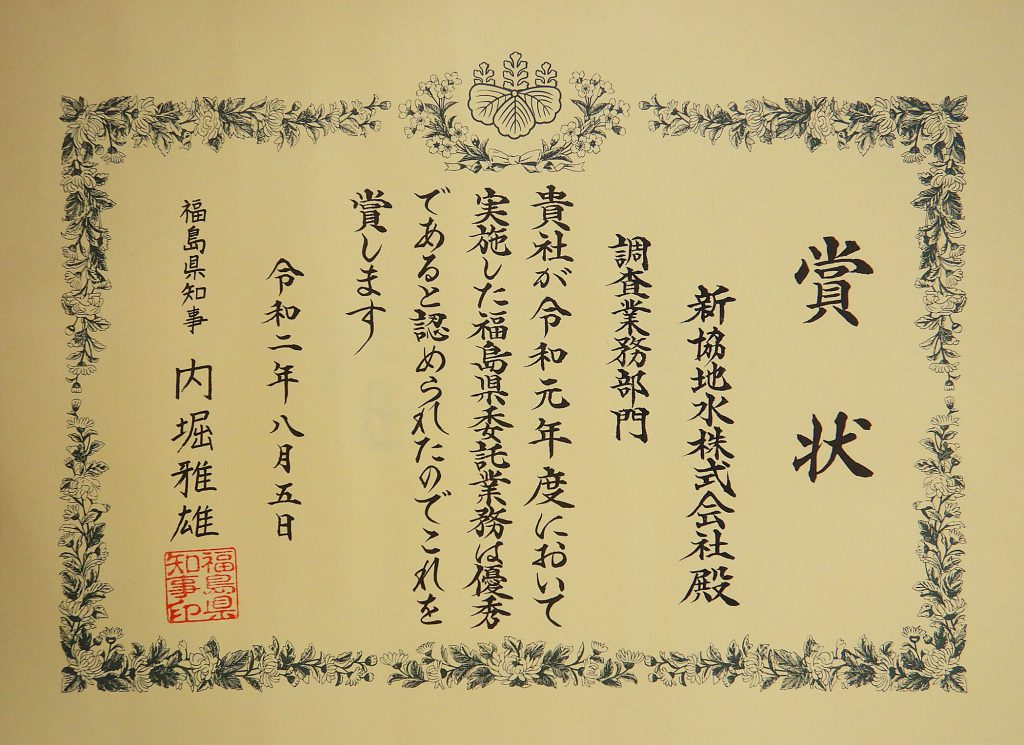 賞状
新協地水株式会社殿
調査業務部門
貴社が令和元年度において
実施した福島県委託業務は優秀
であると認められたのでこれを
賞します
令和二年八月五日
福島県知事 内堀雅雄
福島県
知事印